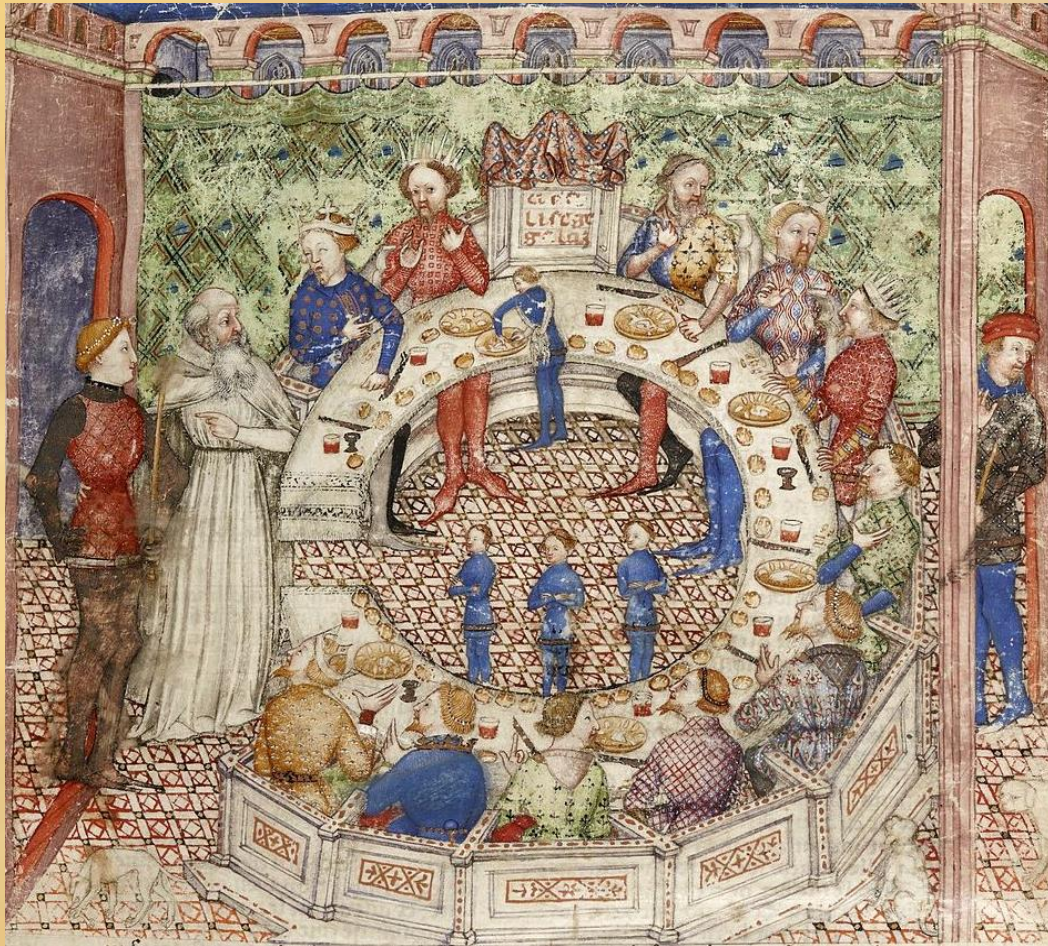 ci est
li sege
galaz